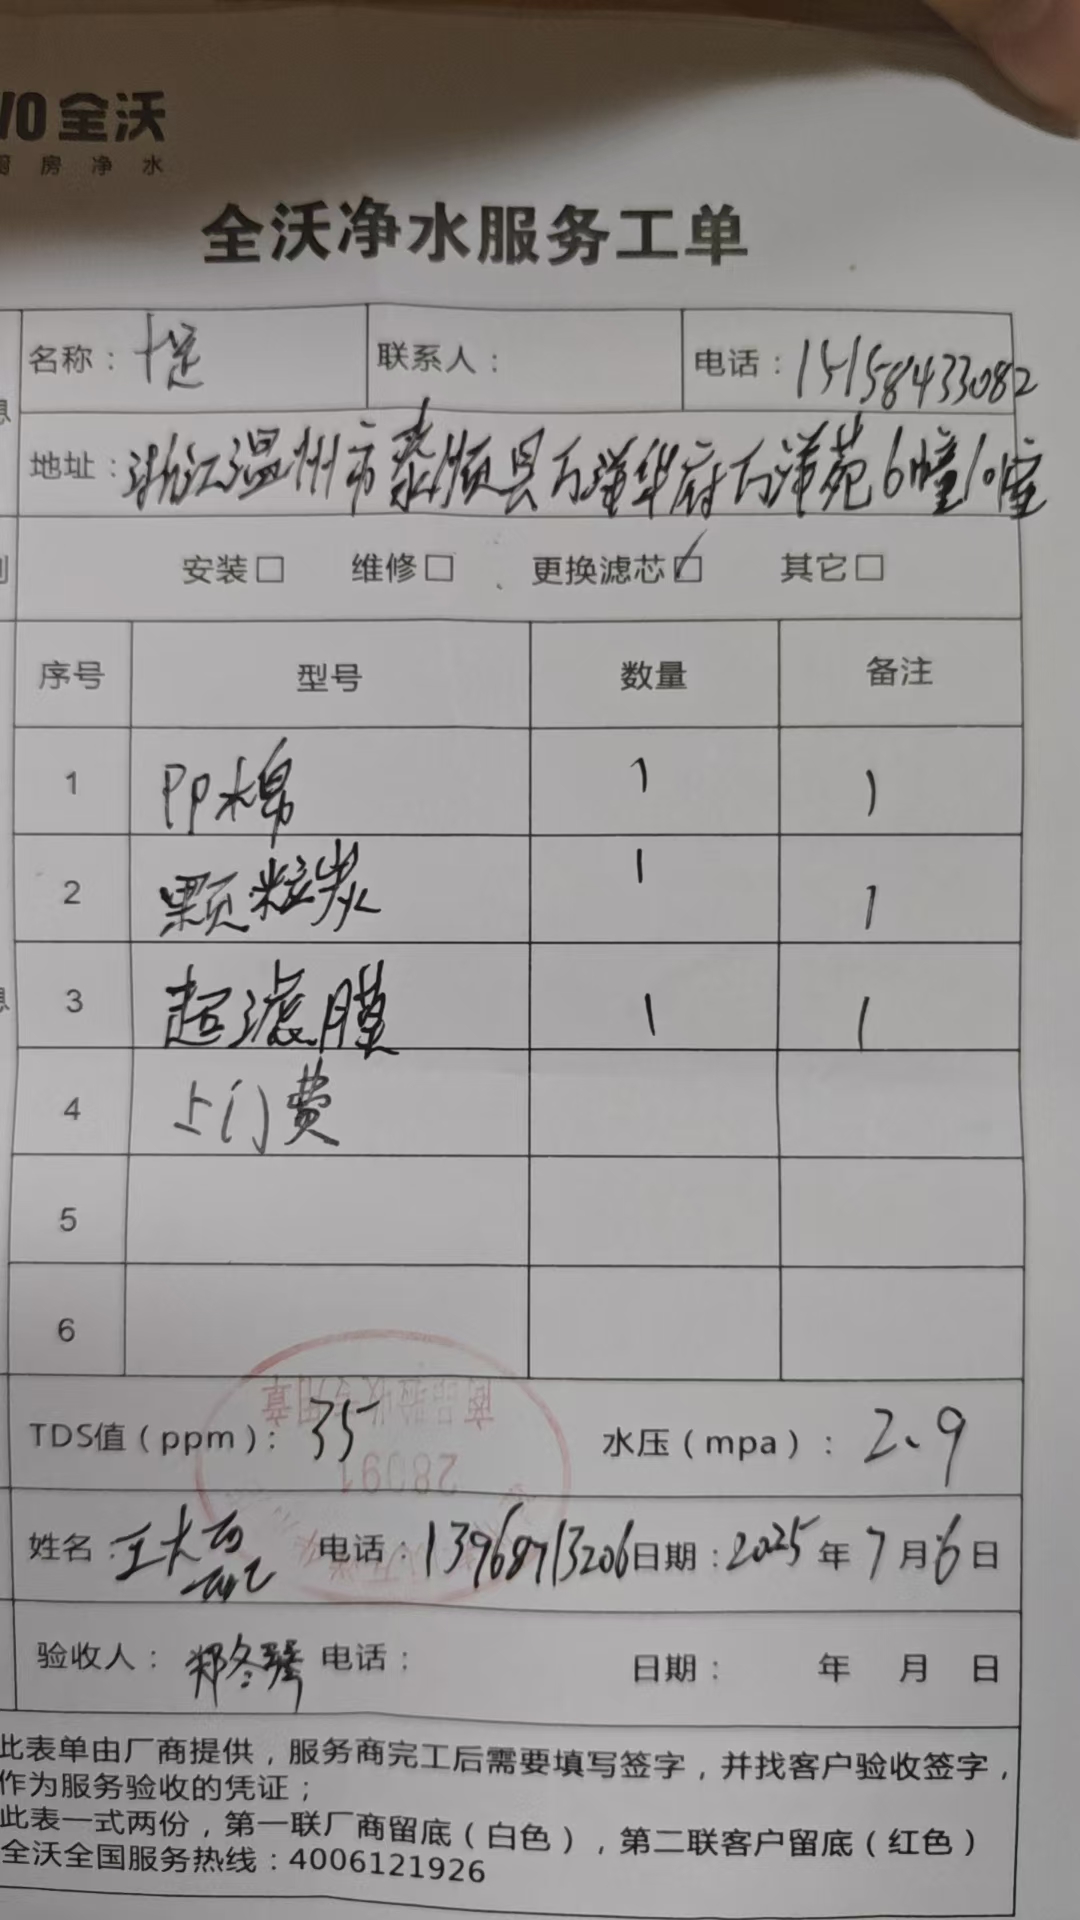 VO 全沃
厨房净水
全沃净水服务工单
名称：十足 联系人： 电话：15158433082
地址：浙江温州市泰顺县万洋华府万洋苑6幢10幢
安装□ 维修□ 更换滤芯☑ 其它□
序号 型号 数量 备注
1 PP棉 1 1
2 颗粒炭 1 1
3 超滤膜 1 1
4 上门费
5
6
商品验收专用章
28091
TDS值（ppm）：35 水压（mpa）：2.9
姓名：王大 电话：13968713206 日期：2025年7月6日
验收人：郑冬 电话： 日期： 年 月 日
此表单由厂商提供，服务商完工后需要填写签字，并找客户验收签字，
作为服务验收的凭证；
此表一式两份，第一联厂商留底（白色），第二联客户留底（红色）
全沃全国服务热线：4006121926